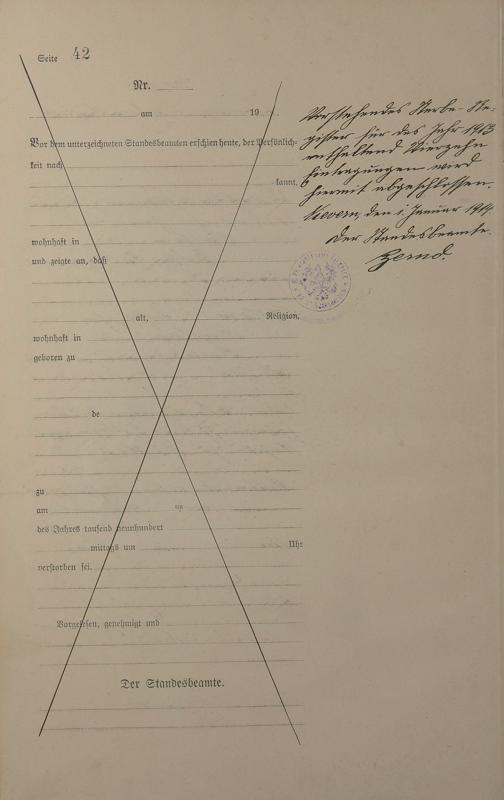 Seite 42
Nr.
am 19
Vor dem unterzeichneten Standesbeamten erschien heute, der Persönlich-
keit nach
kannt,
wohnhaft in
und zeigte an, daß
alt, Religion,
wohnhaft in
geboren zu
de
zu
am
des Jahres tausend neunhundert
mittags um Uhr
verstorben sei.
Vorgelesen, genehmigt und
Der Standesbeamte.
Vorstehendes Sterbe-Re-
gister für das Jahr 1913
enthaltend Vierzehn
Eintragungen wird
hiermit abgeschlossen.
den 1. Januar 1914.
Der Standesbeamte.